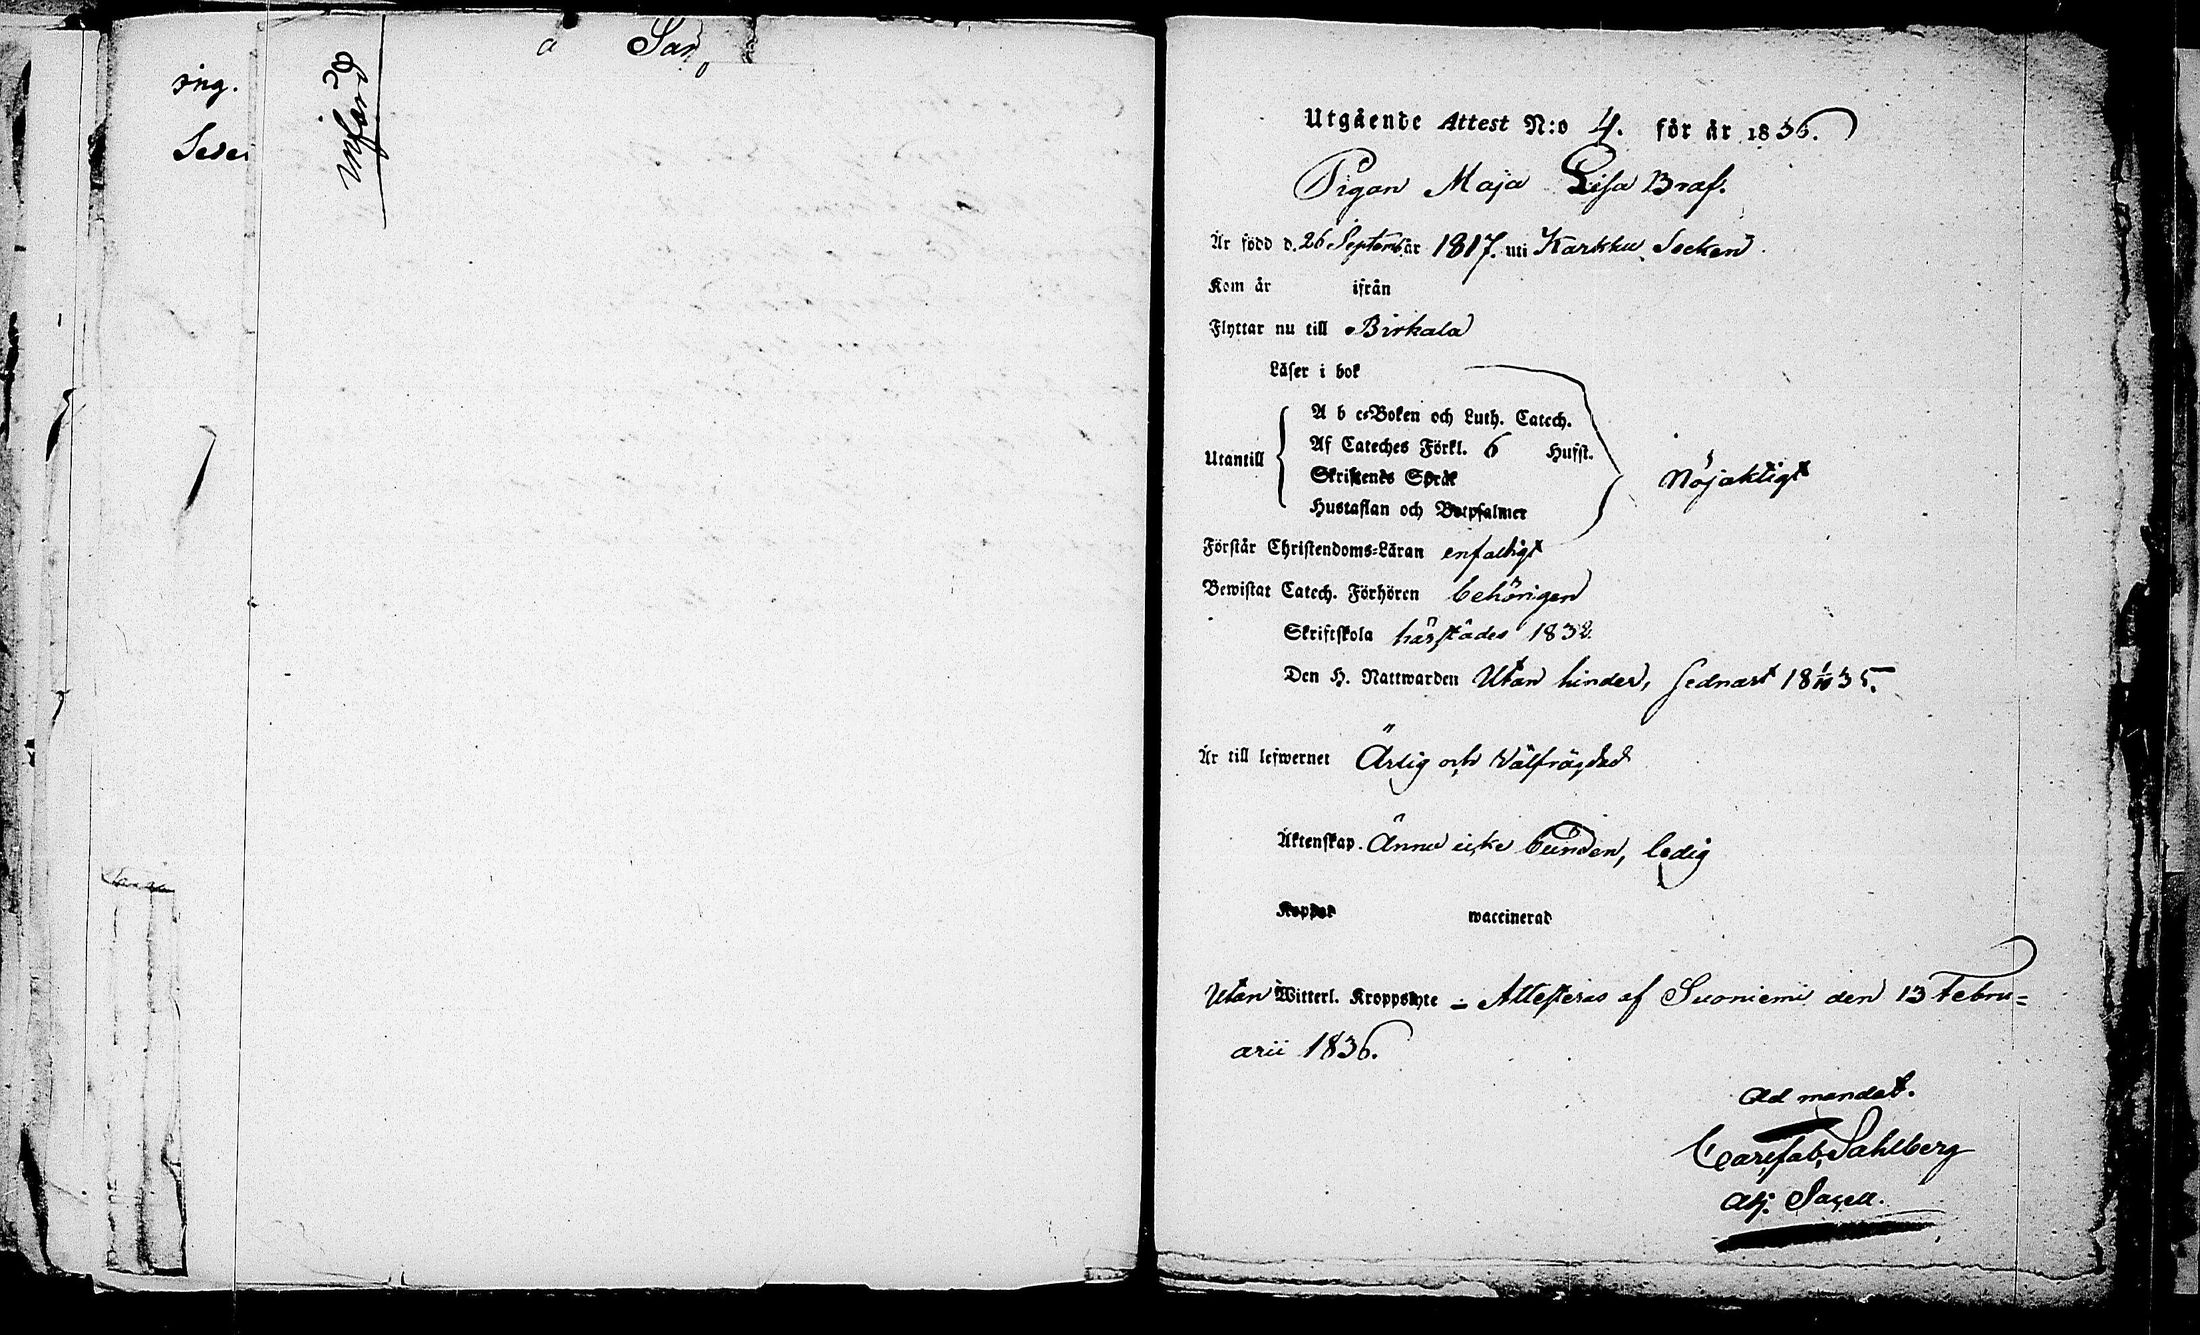 å San
ing.
införd
Utgående Attest N:o 4. för år 1836.
Pigan Maja Lisa Braf.
Är född d. 26 Septemb. år 1817. uti Karkku Socken
Kom år ifrån
Flyttar nu till Birkala
Läser i bok
A b c-Boken och Luth. Catech.
Af Cateches Förkl. 6 Hufst.
Utantill
Nöjaktigt
Skriftenes Språk
Hustaflan och Botpsalmer
Förstår Christendoms-Läran enfaldigt
Bewistat Catech. Förhören behörigen
Skriftskola härstädes 1832.
Den H. Nattwarden Utan hinder, sednast 18 1/10 35.
Är till lefwernet Ärlig och Välfrägdad
Äktenskap. Ännu icke bunden, ledig
Koppor waccinerad
Utan Witterl. Kroppslyte – Attesteras af Suoniemi den 13 Febru=
arii 1836.
Ad mandat.
Carl Fab. Sahlberg
Adj. Sacell.